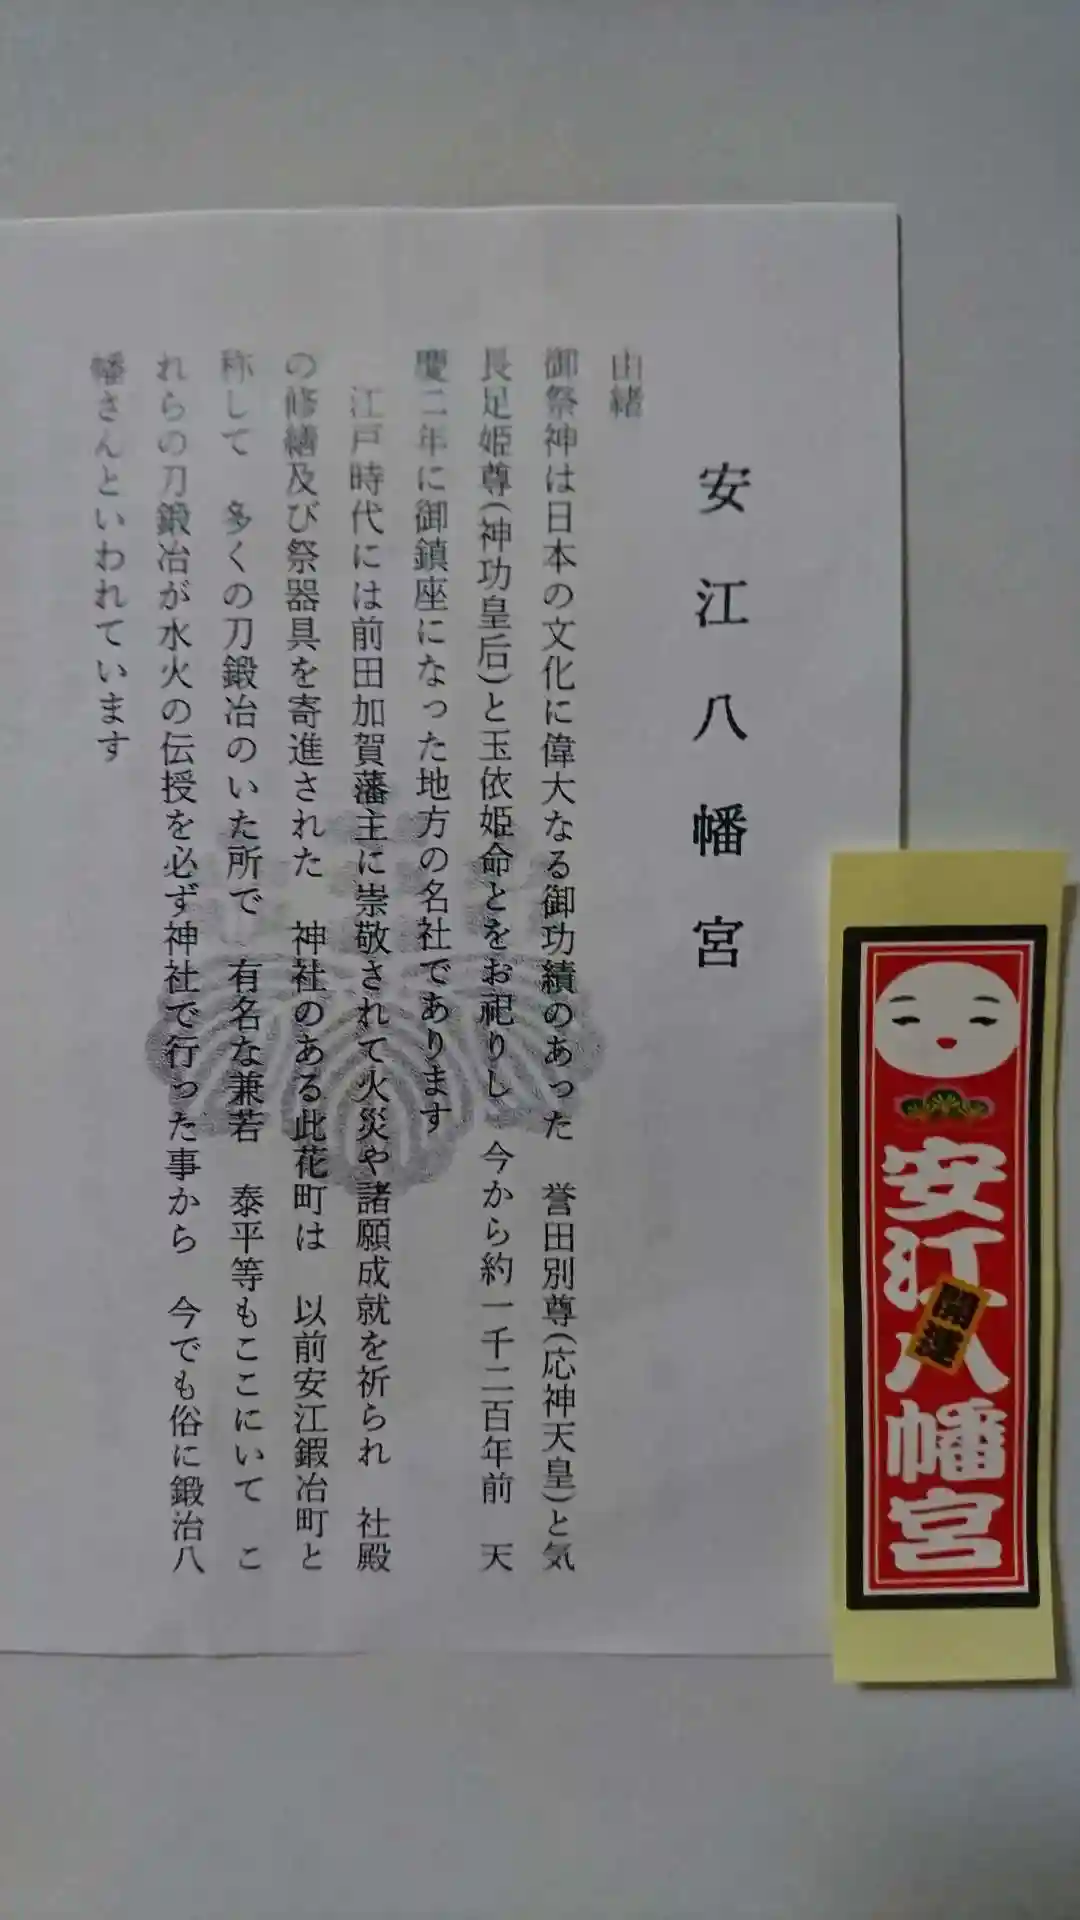 安江八幡宮
由緒
御祭神は日本の文化に偉大なる御功績のあった　誉田別尊(応神天皇)と気
長足姫尊(神功皇后)と玉依姫命とをお祀りし　今から約一千二百年前　天
慶二年に御鎮座になった地方の名社であります
　江戸時代には前田加賀藩主に崇敬されて火災や諸願成就を祈られ　社殿
の修繕及び祭器具を寄進された　神社のある此花町は　以前安江鍛冶町と
称して　多くの刀鍛冶のいた所で　有名な兼若　泰平等もここにいて　こ
れらの刀鍛冶が水火の伝授を必ず神社で行った事から　今でも俗に鍛治八
幡さんといわれています
安江八幡宮
開運